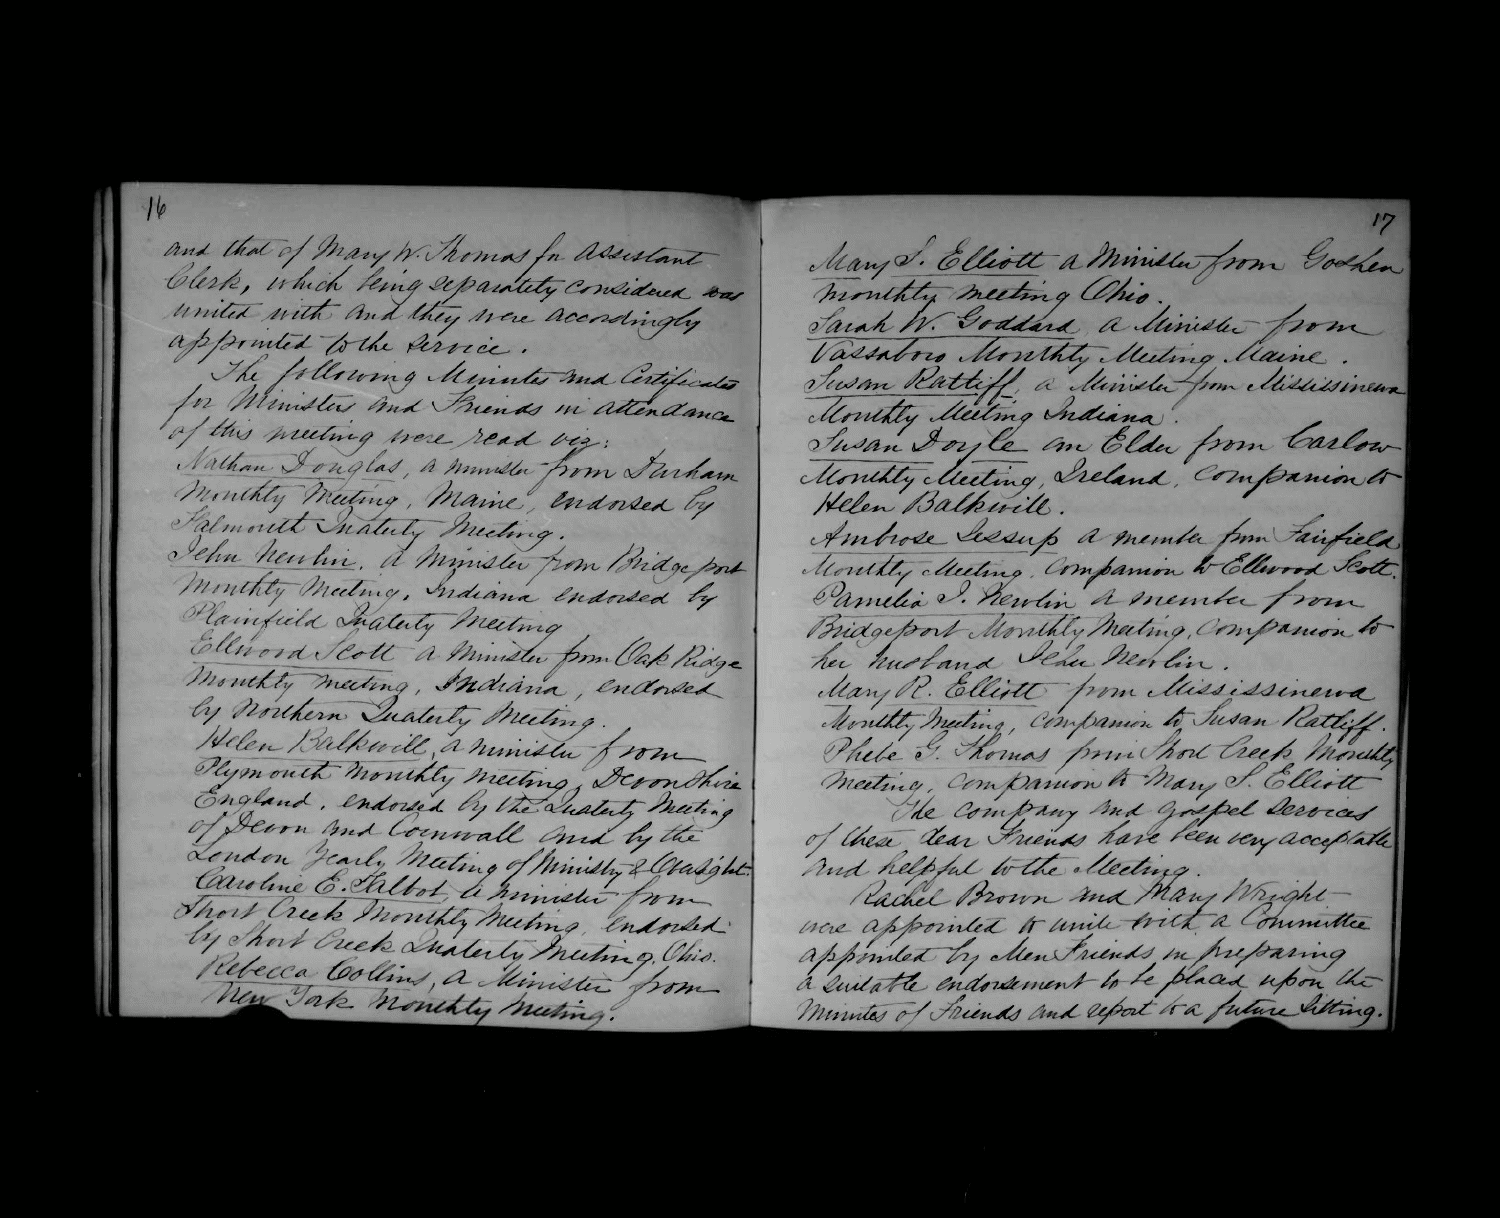 16
and that of Mary W. Thomas for Assistant
Clerk, which being separately considered was
united with and they were accordingly
appointed to the service.
The following Minutes and Certificates
for Ministers and Friends in attendance
of this meeting were read viz:
Nathan Douglas, a minister from Durham
Monthly Meeting, Maine, endorsed by
Falmouth Quaterly Meeting.
John Newlin, a Minister from Bridgeport
Monthly Meeting, Indiana endorsed by
Plainfield Quaterly Meeting
Ellwood Scott a Minister from Oak Ridge
Monthly Meeting, Indiana, endorsed
by Northern Quaterly Meeting.
Helen Balkwill, a minister from
Plymouth Monthly meeting, Devonshire
England, endorsed by the Quaterly Meeting
of Devon and Cornwall and by the
London Yearly Meeting of Ministry & Oversight.
Caroline E. Talbot, a minister from
Short Creek Monthly Meeting, endorsed
by Short Creek Quaterly Meeting, Ohio.
Rebecca Collins, a Minister from
New York Monthly Meeting.
17
Mary S. Elliott a Minister from Goshen
Monthly Meeting Ohio.
Sarah W. Goddard a Minister from
Vassaboro Monthly Meeting Maine.
Susan Ratliff, a Minister from Mississinewa
Monthly Meeting Indiana.
Susan Doyle an Elder from Carlow
Monthly Meeting, Ireland, Companion to
Helen Balkwill.
Ambrose Jessup a member from Fairfield
Monthly Meeting, Companion to Ellwood Scott.
Pamelia J. Newlin a member from
Bridgeport Monthly Meeting, Companion to
her husband John Newlin.
Mary R. Elliott from Mississinewa
Monthly Meeting, Companion to Susan Ratliff.
Phebe G. Thomas from Short Creek Monthly
Meeting, Companion to Mary S. Elliott
The company and gospel services
of these dear Friends have been very acceptable
and helpful to the Meeting.
Rachel Brown and Mary Wright
were appointed to unite with a Committee
appointed by Men Friends in preparing
a suitable endorsement to be placed upon the
Minutes of Friends and report to a future sitting.